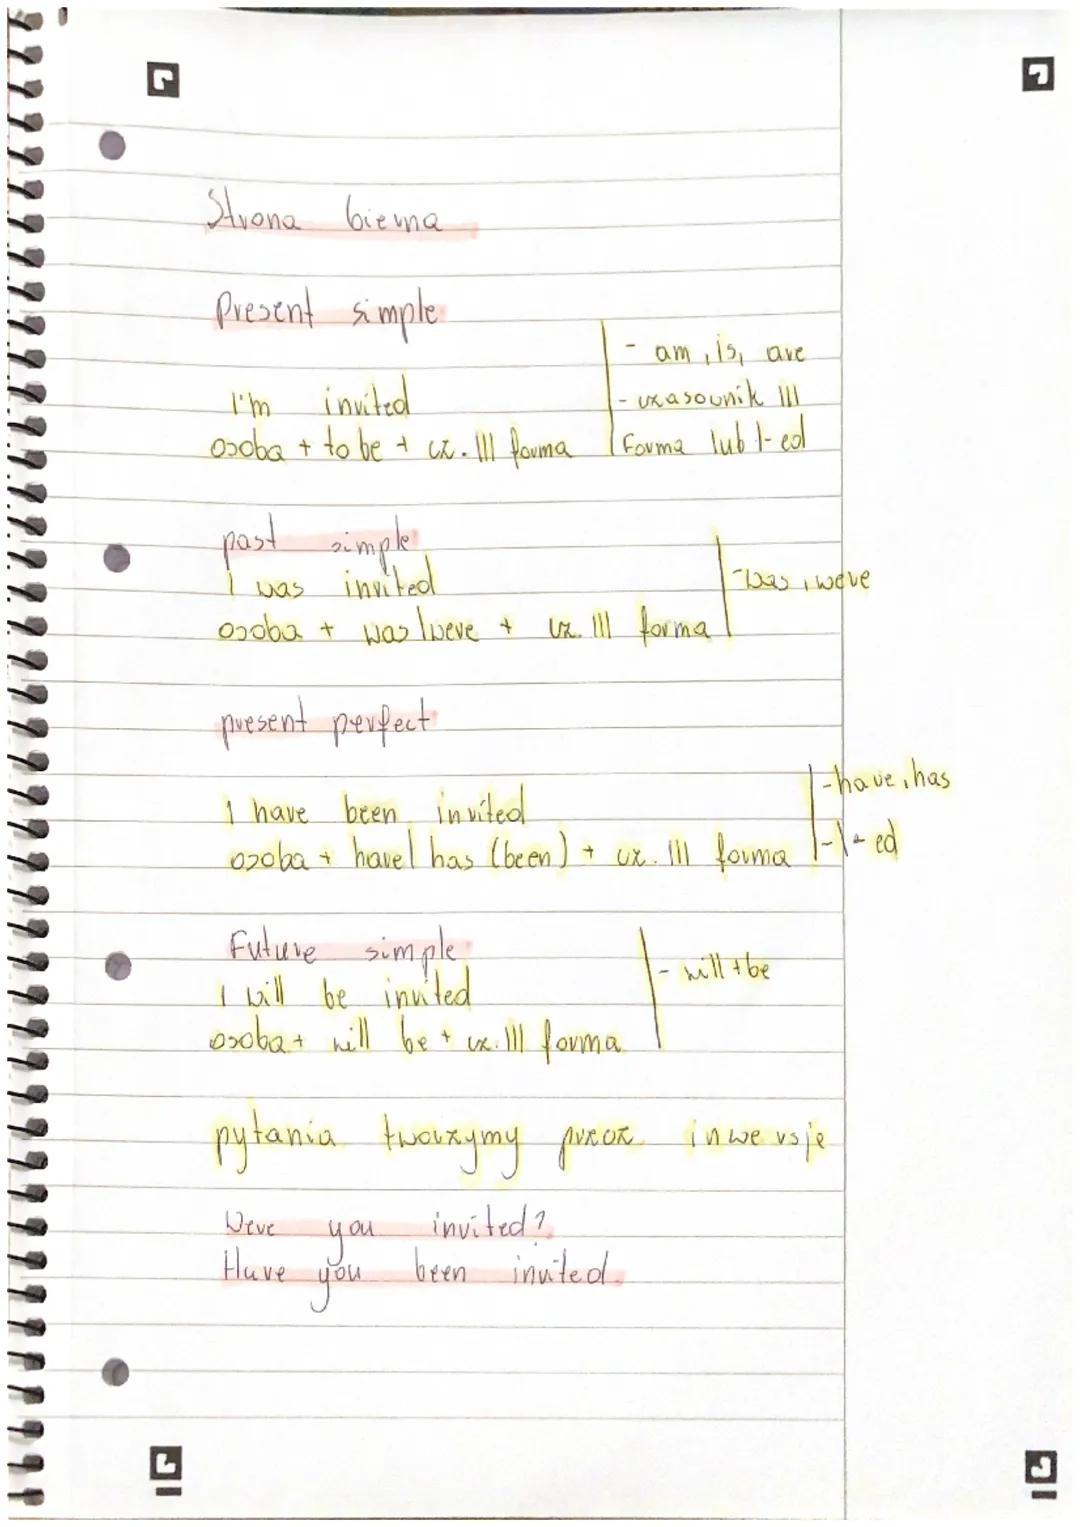 Strona bierna
Present simple
- am, is, are
I'm invited
- czasownik III
osoba + to be + cz. III forma
Forma lub + -ed
past simple
I was invited
- was, were
osoba + was/were + cz. III forma
present perfect
- have, has
I have been invited
osoba + have/ has (been) + cz. III forma
- + - ed
Future simple
- will + be
I will be invited
osoba + will be + cz. III forma
pytania tworzymy przez inwersje
Were you invited?
Have you been invited.